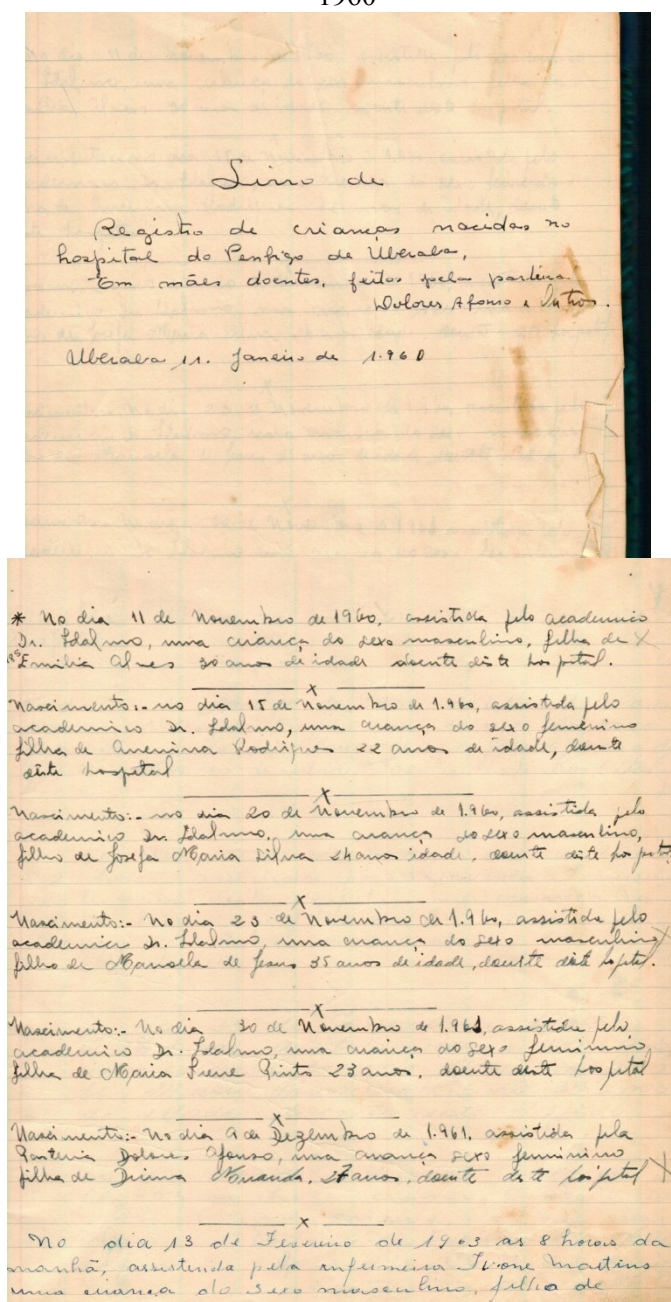 1960
Livro de
Registro de crianças nacidas no
hospital do Penfigo de Uberaba,
Em mães doentes, feitos pela parteira
Dolores Afonso e Outros.
Uberaba 11. Janeiro de 1.960
* No dia 11 de Novembro de 1960, assistida pelo academico
Dr. Idalmo, uma criança do sexo masculino, filha de X
Emilia Alves 30 anos de idade doente dêste hospital.
X
Nascimento:- no dia 15 de Novembro de 1.960, assistida pelo
academico Dr. Idalmo, uma criança do sexo femenino
filha de Rodrigues 22 anos de idade, doente
dêste hospital
X
Nascimento:- no dia 20 de Novembro de 1.960, assistida pelo
academico Dr. Idalmo, uma criança do sexo masculino,
filho de Josefa Maria Silva 24 anos idade, doente dêste hospital
X
Nascimento:- No dia 23 de Novembro de 1.960, assistida pelo
academico Dr. Idalmo, uma criança do sexo masculino X
filho de Manoela de Jesus 35 anos de idade, doente dêste hopital.
X
Nascimento:- No dia 30 de Novembro de 1.961, assistida pelo
academico Dr. Idalmo, uma criança do sexo feminino,
filha de Maria Irene Pinto 23 anos, doente dêste hospital
X
Nascimento:- No dia 9 de Dezembro de 1.961. assistida pela
Parteria Dolores Afonso, uma criança sexo feminino
filha de Miranda, 27 anos, doente deste hospital X
X
No dia 13 de Fevereiro de 1963 as 8 horas da
manhã, assistenda pela enfermeira Ivone Martins
uma criança do sexo masculino, filho de